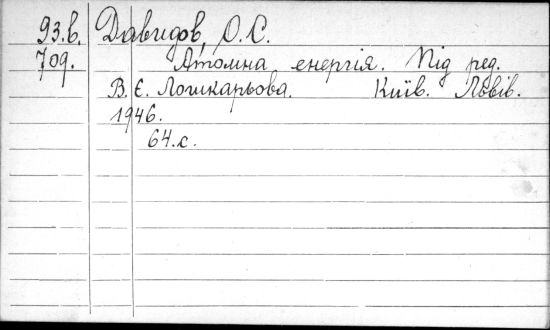 93.в. Давидов, О.С.
709. Атомна енергія. Під ред.
В.Є. Лошкарьова. Київ. Львів.
1946.
64.с.